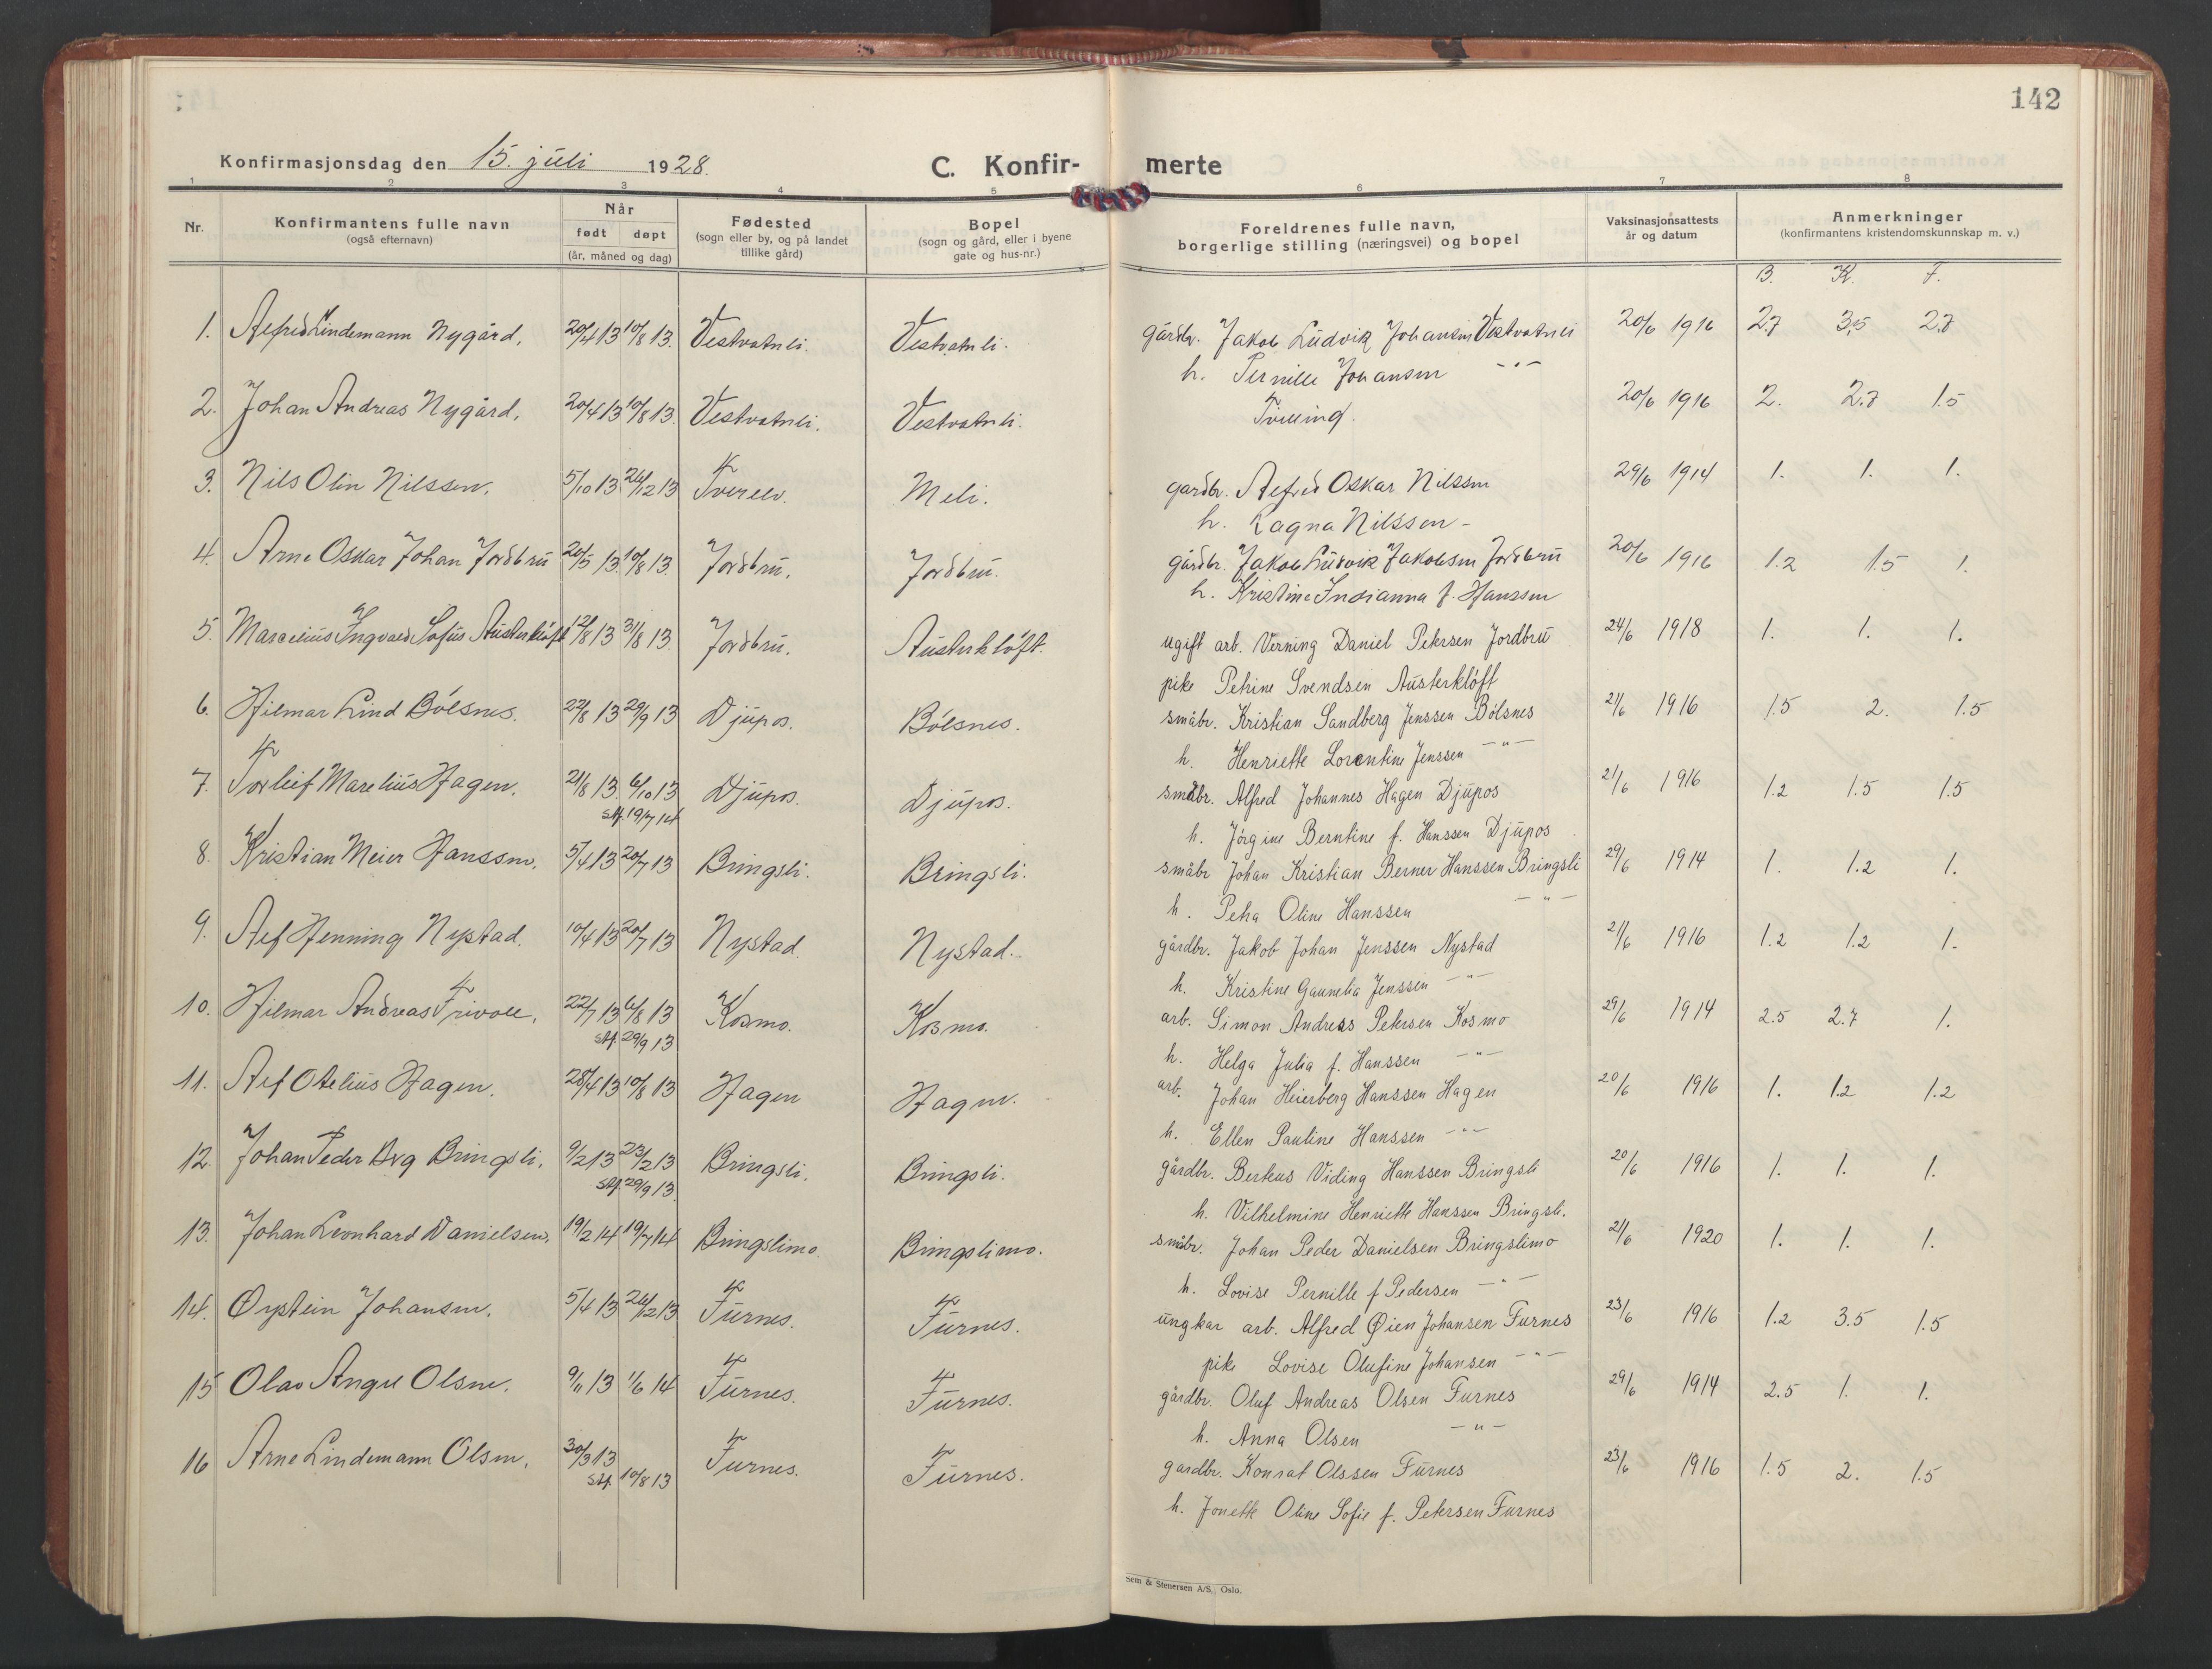 142
Konfirmasjonsdag den 15. juli 1928.
C. Konfir- merte
1 2 3 4 5 6 7 8
Nr. Konfirmantens fulle navn (også efternavn) Når født døpt (år, måned og dag) Fødested (sogn eller by, og på landet tillike gård) Bopel (sogn og gård, eller i byene gate og hus-nr.) Foreldrenes fulle navn, borgerlige stilling (næringsvei) og bopel Vaksinasjonsattests år og datum Anmerkninger (konfirmantens kristendomskunnskap m. v.)
B. K. F.
1. Alfred Lindemann Nygård. 20/4 13 10/8 13. Vestvatnli. Vestvatnli. gårdbr. Jakob Ludvik Johansen Vestvatnli 20/6 1916 2.7 3,5 2.7
h. Pernille Johansen -"-
2. Johan Andreas Nygård. 20/4 13 10/8 13. Vestvatnli. Vestvatnli. Tvilling. 20/6 1916 2. 2.7 1.5
3. Nils Olin Nilssen. 5/10 13 26/12 13 Tverelv. Meli. gardbr. Alfred Oskar Nilssen 29/6 1914 1. 1. 1.
h. Ragna Nilssen -
4. Arne Oskar Johan Jordbru 20/5 13. 10/8 13. Jordbru. Jordbru. gårdbr. Jakob Ludvik Jakobsen Jordbru 20/6 1916 1.2 1.5 1.
h. Kristine Indianna f. Hanssen
5. Marcelius Ingvald Sofus Austerkløft 12/8 13 31/8 13. Jordbru. Austerkløft. ugift arb. Verning Daniel Petersen Jordbru 24/6 1918 1. 1. 1.
pike Petrine Svendsen Austerkløft
6. Hilmar Lind Bólsnes. 22/8 13 29/9 13 Djupos. Bólsnes. småbr. Kristian Sandberg Jenssen Bólsnes 21/6 1916 1.5 2. 1.5
h. Henriette Lorentine Jenssen -"-
7. Torleif Marelius Hagen. 21/8 13. 6/10 13 Djupos. Djupos. småbr. Alfred Johannes Hagen Djupos 21/6 1916 1.2 1.5 1.5
stf. 19/7 14
h. Jørgine Berntine f. Hanssen Djupos
8. Kristian Meier Hanssen. 5/4 13 20/7 13 Bringsli. Bringsli. småbr Johan Kristian Berner Hanssen Bringsli 29/6 1914 1. 1.2 1.
h. Petra Oline Hanssen -"-
9. Alf Henning Nystad. 10/4 13 20/7 13 Nystad. Nystad. gårdbr. Jakob Johan Jenssen Nystad 21/6 1916 1.2 1.2 1.
h. Kristine Gaunelia Jenssen -"-
10. Hilmar Andreas Trivoll. 22/7 13 6/8 13 Kosmo. Kosmo. arb. Simon Andreas Petersen Kosmo 29/6 1914 2.5 2.7 1.
stf. 29/9 13
h. Helga Julia f. Hanssen -"-
11. Alf Otelius Hagen. 28/4 13 10/8 13 Hagen Hagen. arb. Johan Heierberg Hanssen Hagen 20/6 1916 1. 1.2 1.2
h. Ellen Pauline Hanssen -"-
12. Johan Peder Berg Bringsli. 9/2 13 23/2 13 Bringsli. Bringsli. gårdbr. Berteus Viding Hanssen Bringsli 20/6 1916 1. 1. 1.
stf. 29/9 13.
h. Vilhelmine Henriette Hanssen Bringsli.
13. Johan Leonhard Danielsen. 19/2 14 19/7 14 Bringslimo. Bringslimo. småbr. Johan Peder Danielsen Bringslimo 21/6 1920 1. 1. 1.
h. Lovise Pernille f Pedersen -"-
14. Øystein Johansen. 5/4 13 26/12 13 Furnes. Furnes. ungkar arb. Alfred Øien Johansen Furnes 23/6 1916 1.2 3.5 1.5
pike Lovise Olufine Johansen -"-
15 Olav Angel Olsen. 9/11 13 1/6 14 Furnes. Furnes. gårdbr. Oluf Andreas Olsen Furnes 29/6 1914 2.5 1. 1.
h. Anna Olsen -"-
16 Arne Lindemann Olsen. 30/3 13 Furnes. Furnes. gardbr. Konrat Olssen Furnes 23/6 1916 1.5 2. 1.5
stf. 10/8 13
h. Jonette Oline Sofie f. Petersen Furnes
Sem & Stenersen A/S, Oslo.